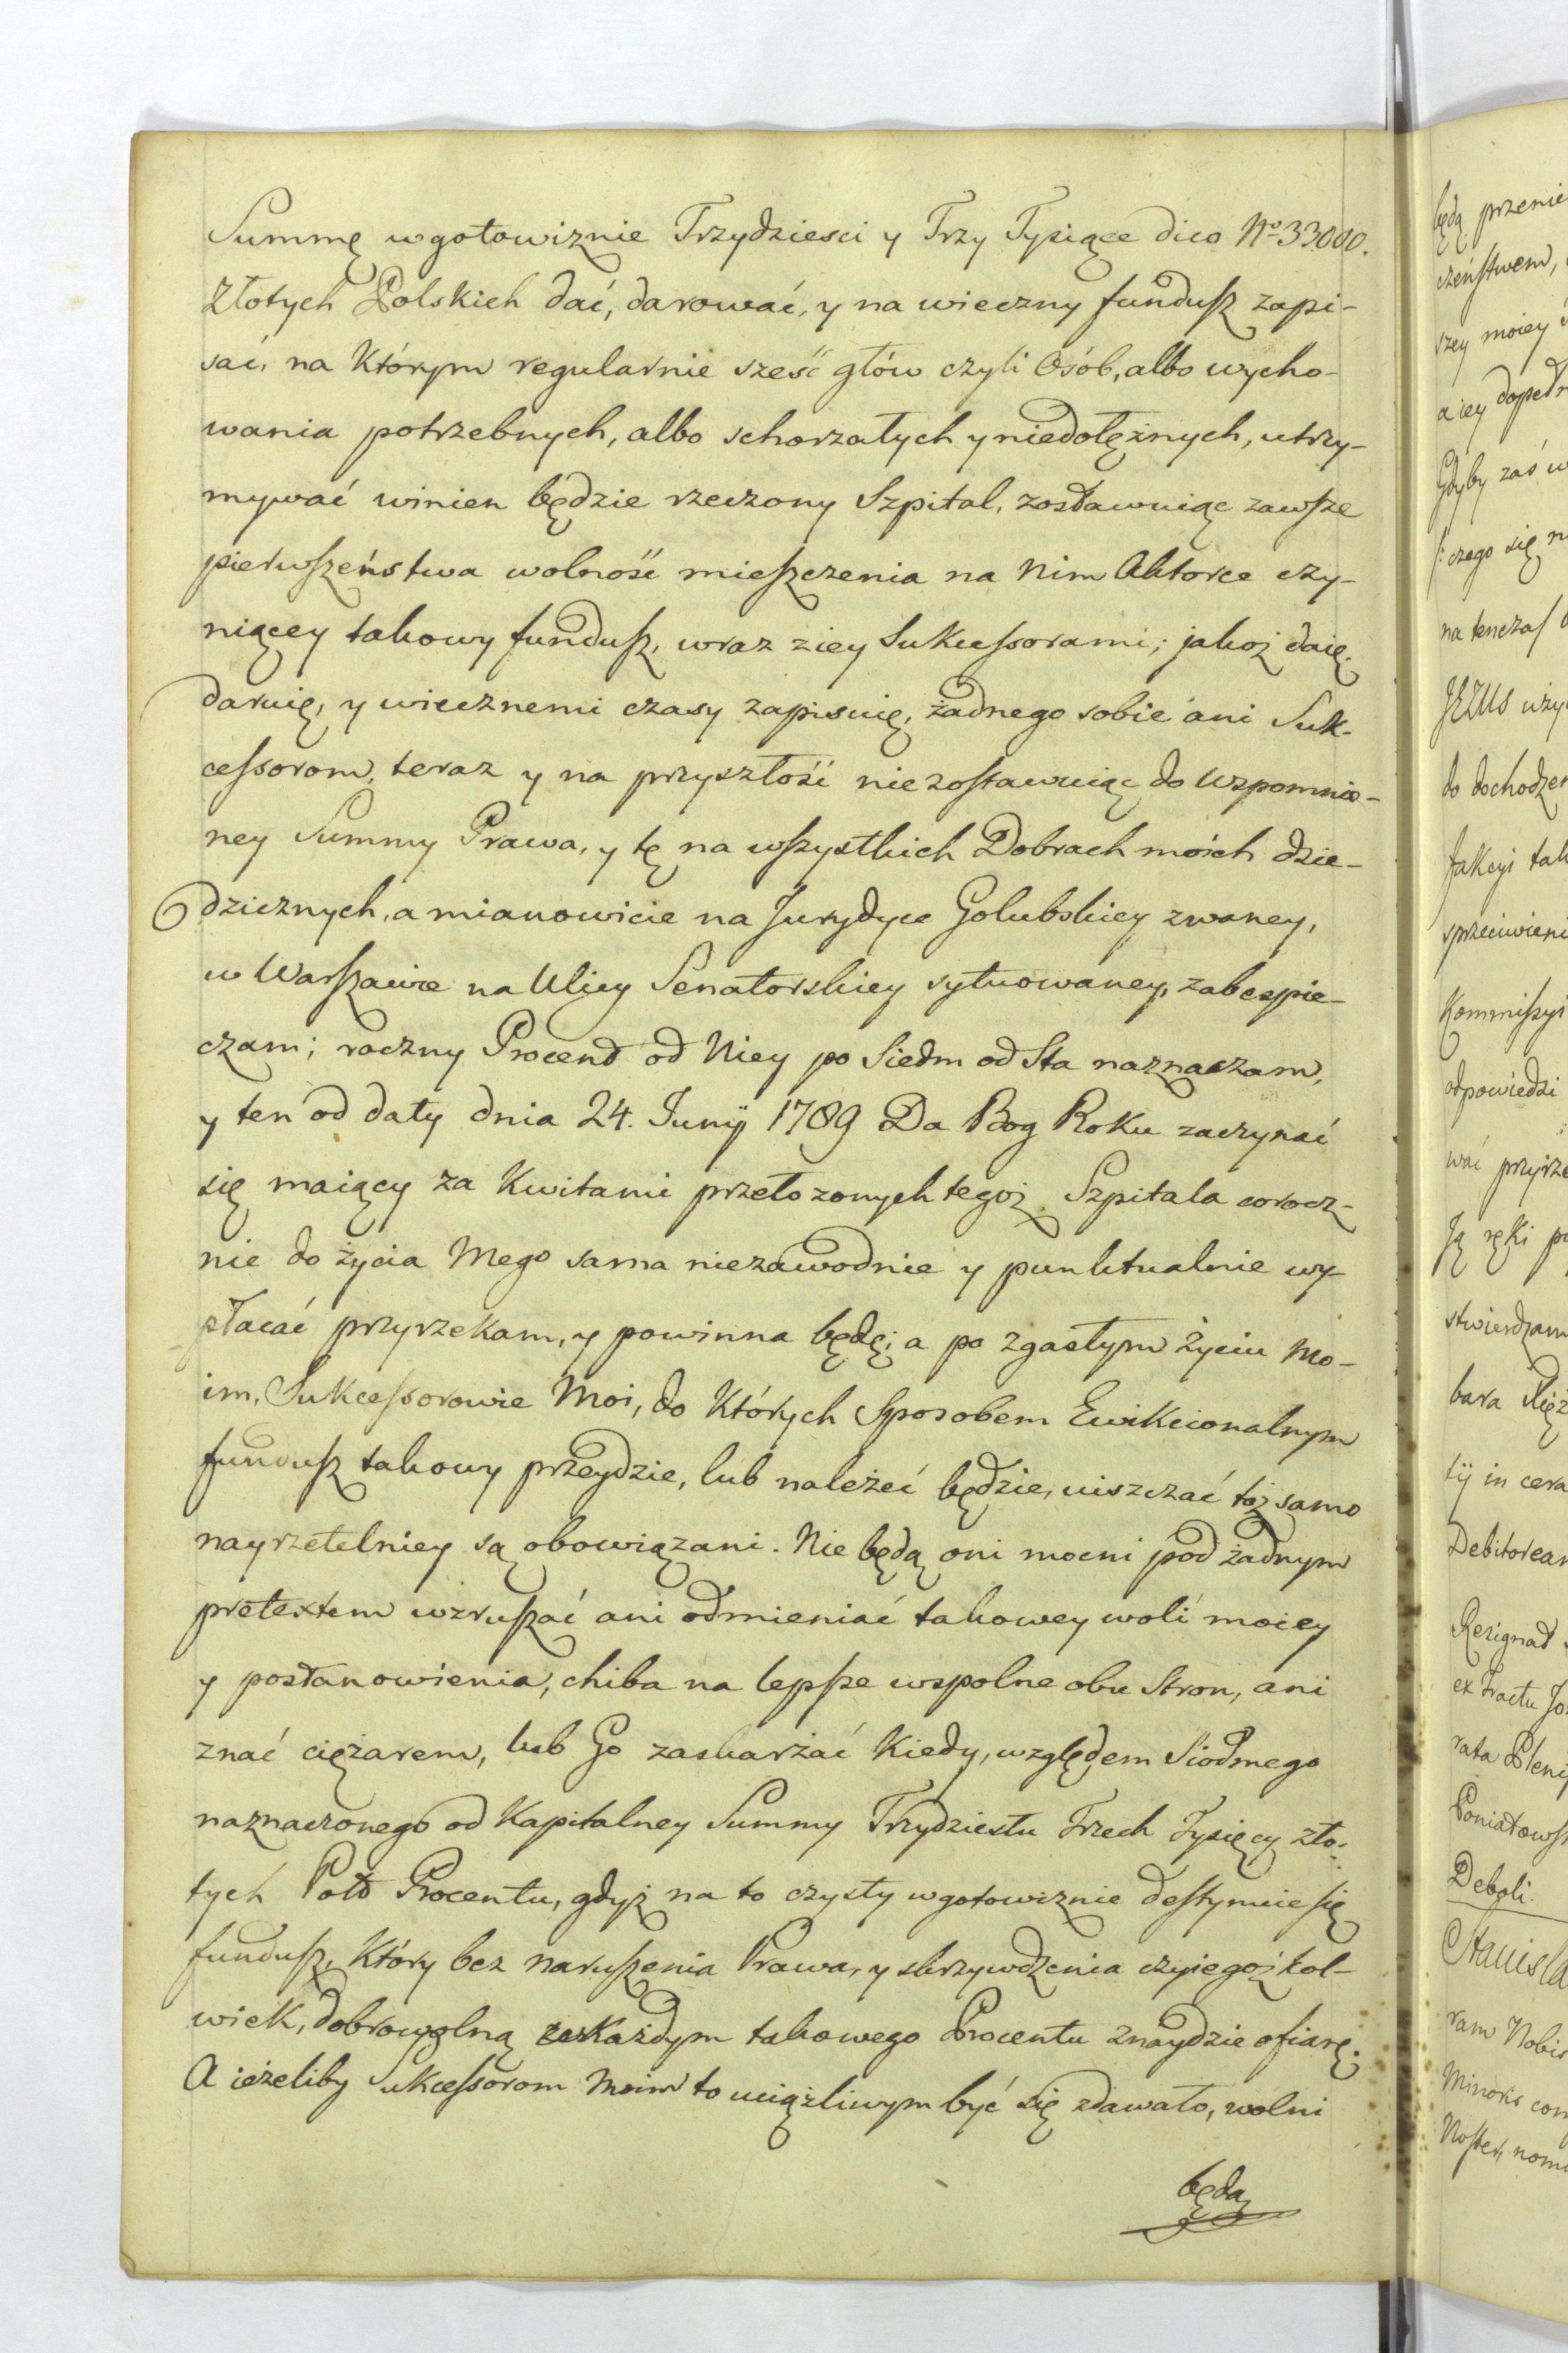 Summę w gotowiznie Trzydziesci y Trzy Tysiące dico No 33000.
Złotych Polskich dać, darować, y na wieczny fundusz zapi-
sać, na Którym regularnie sześć głów czyli Osób, albo wycho-
wania potrzebnych, albo schorzałych y niedołężnych, utrzy-
mywać winien będzie rzeczony Szpital, zostawuiąc zawsze
pierwszeństwa wolność mieszczenia na Nim Aktorce czy-
niącey takowy fundusz, wraz z iey Sukcessorami; jakoż daię,
daruię, y wiecznemi czasy zapisuię, żadnego sobie ani Suk-
cessorom, teraz y na przyszłość nie zostawuiąc do wzpomnio-
ney Summy Prawa, y tę na wszystkich Dobrach moich dzie-
dzicznych, a mianowicie na Jurydyce Golubskiey zwaney,
w Warszawie na Ulicy Senatorskiey sytuowaney, zabespie-
czam; roczny Procent od Niey po Siedm od Sta naznaczam,
y ten od daty dnia 24. Junij 1789 Da Bog Roku zaczynać
się maiący za Kwitami przełozonych tegoż Szpitala corocz-
nie do życia Mego sama niezawodnie y punktualnie wy-
płacać przyrzekam, y powinna będę; a po zgasłym życiu Mo-
im, Sukcessorowie Moi, do Których Sposobem Ewikcionalnym
fundusz takowy przeydzie, lub należeć będzie, uiszczać toż samo
nayrzetelniey są obowiązani. Nie będą oni mocni pod żadnym
pretextem wzruszać ani odmieniać takowey woli moiey
y postanowienia, chiba na lepsze wspolne obu Stron, ani
znać ciężarem, lub Go zaskarżać Kiedy, względem Siodmego
naznaczonego od Kapitalney Summy Trzydziestu Trzech Tysięcy zło-
tych Pols Procentu, gdyż na to czysty w gotowiznie destynuie się
fundusz, Który bez naruszenia Prawa, y skrzywdzenia czyiegożkol-
wiek, dobrowolną w Każdym takowego Procentu znaydzie ofiarę.
A ieżeliby Sukcessorom Moim to uciążliwym być się zdawało, wolni
będą